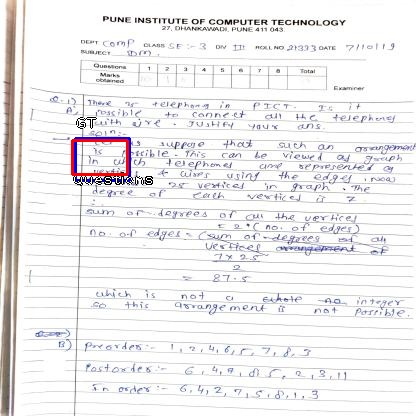 PUNE INSTITUTE OF COMPUTER TECHNOLOGY
27, DHANKAWADI, PUNE 411 043.
DEPT. Comp CLASS SE:-3 DIV III ROLL NO 21333 DATE 7/10/19
SUBJECT DM.
Questions 1 2 3 4 5 6 7 8 Total
Marks obtained
Examiner
Q.1) There 25 telephong in PICT. Is it
A. possible to connect all the telephones
with wire. Justify your ans.
GT
soln:-
suppose that such an arrangement
is possible. This can be viewed as graph
in which telephones are represented as
& wires using the edges. now
Questions
25 vertices in graph. The
degree of each vertices is 7.
∴
sum of degrees of all the vertices
= 2*(no. of edges)
no. of edges = (sum of degrees of all
vertices arrangement of
7x25
2
= 87.5
which is not a whole no integer
so this arrangement is not possible.
B) Preorder:- 1, 2, 4, 6, 5, 7, 8, 3
Postorder:- 6, 4, 7, 8, 5, 2, 3, 11
In order:- 6, 4, 2, 7, 5, 8, 1, 3